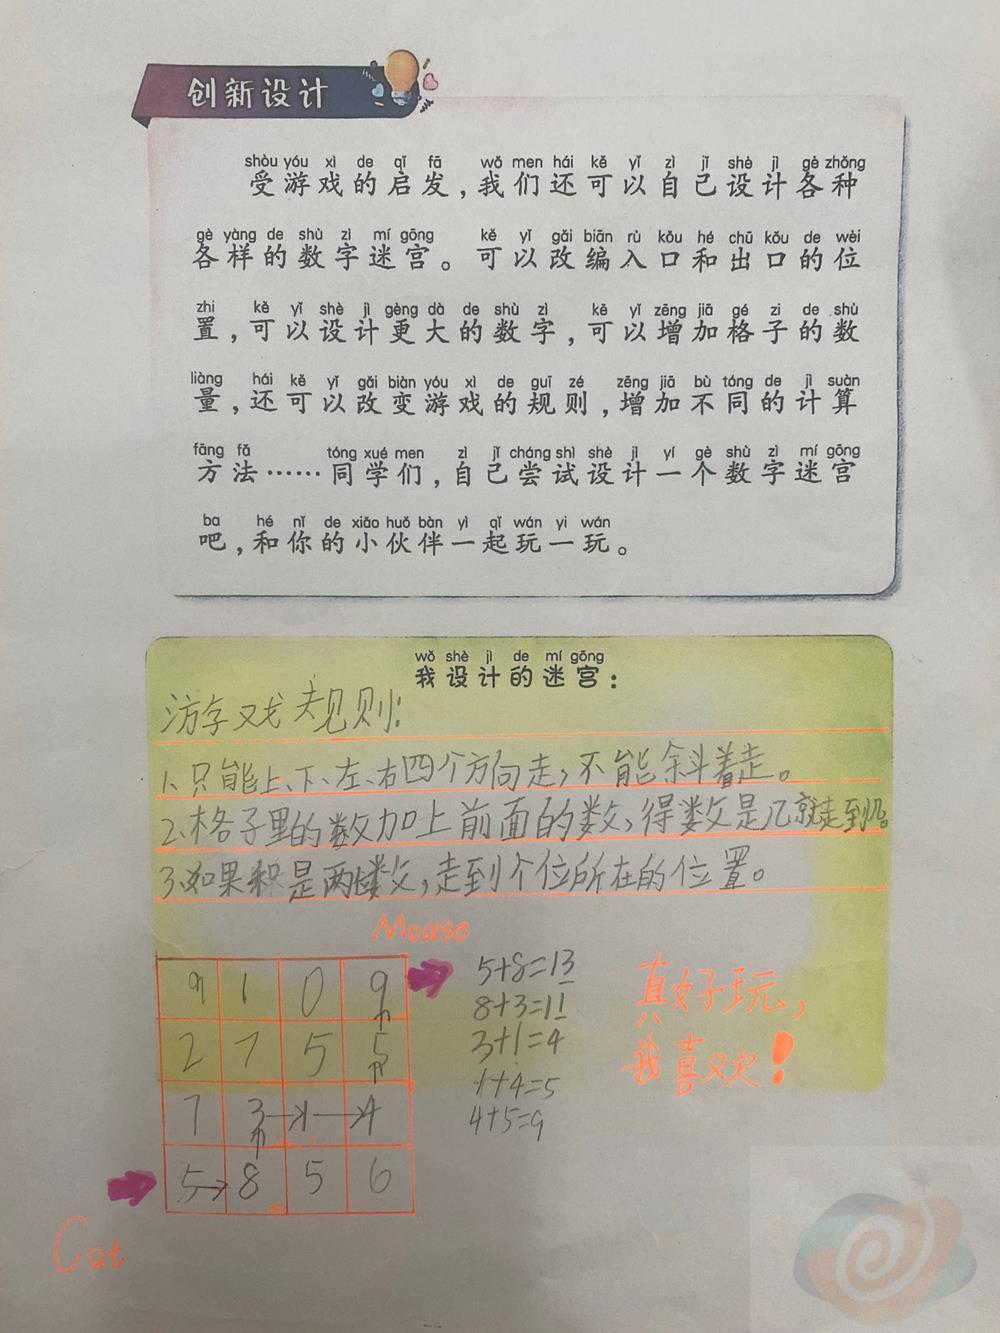 创新设计
shòu yóu xì de qǐ fā wǒ men hái kě yǐ zì jǐ shè jì gè zhǒng
受游戏的启发,我们还可以自己设计各种
gè yàng de shù zì mí gōng kě yǐ gǎi biān rù kǒu hé chū kǒu de wèi
各样的数字迷宫。可以改编入口和出口的位
zhi kě yǐ shè jì gèng dà de shù zì kě yǐ zēng jiā gé zi de shù
置,可以设计更大的数字,可以增加格子的数
liàng hái kě yǐ gǎi biàn yóu xì de guī zé zēng jiā bù tóng de jì suàn
量,还可以改变游戏的规则,增加不同的计算
fāng fǎ tóng xué men zì jǐ cháng shì shè jì yí gè shù zì mí gōng
方法……同学们,自己尝试设计一个数字迷宫
ba hé nǐ de xiǎo huǒ bàn yì qǐ wán yi wán
吧,和你的小伙伴一起玩一玩。
wǒ shè jì de mí gōng
我设计的迷宫:
游戏规则:
1、只能上、下、左、右四个方向走,不能斜着走。
2、格子里的数加上前面的数,得数是几就走到几。
3、如果积是两位数,走到个位所在的位置。
Mouse
9 1 0 9
2 7 5 5
7 3 1 4
5 8 5 6
5+8=13
8+3=11
3+1=4
1+4=5
4+5=9
真好玩,
我喜欢!
Cat